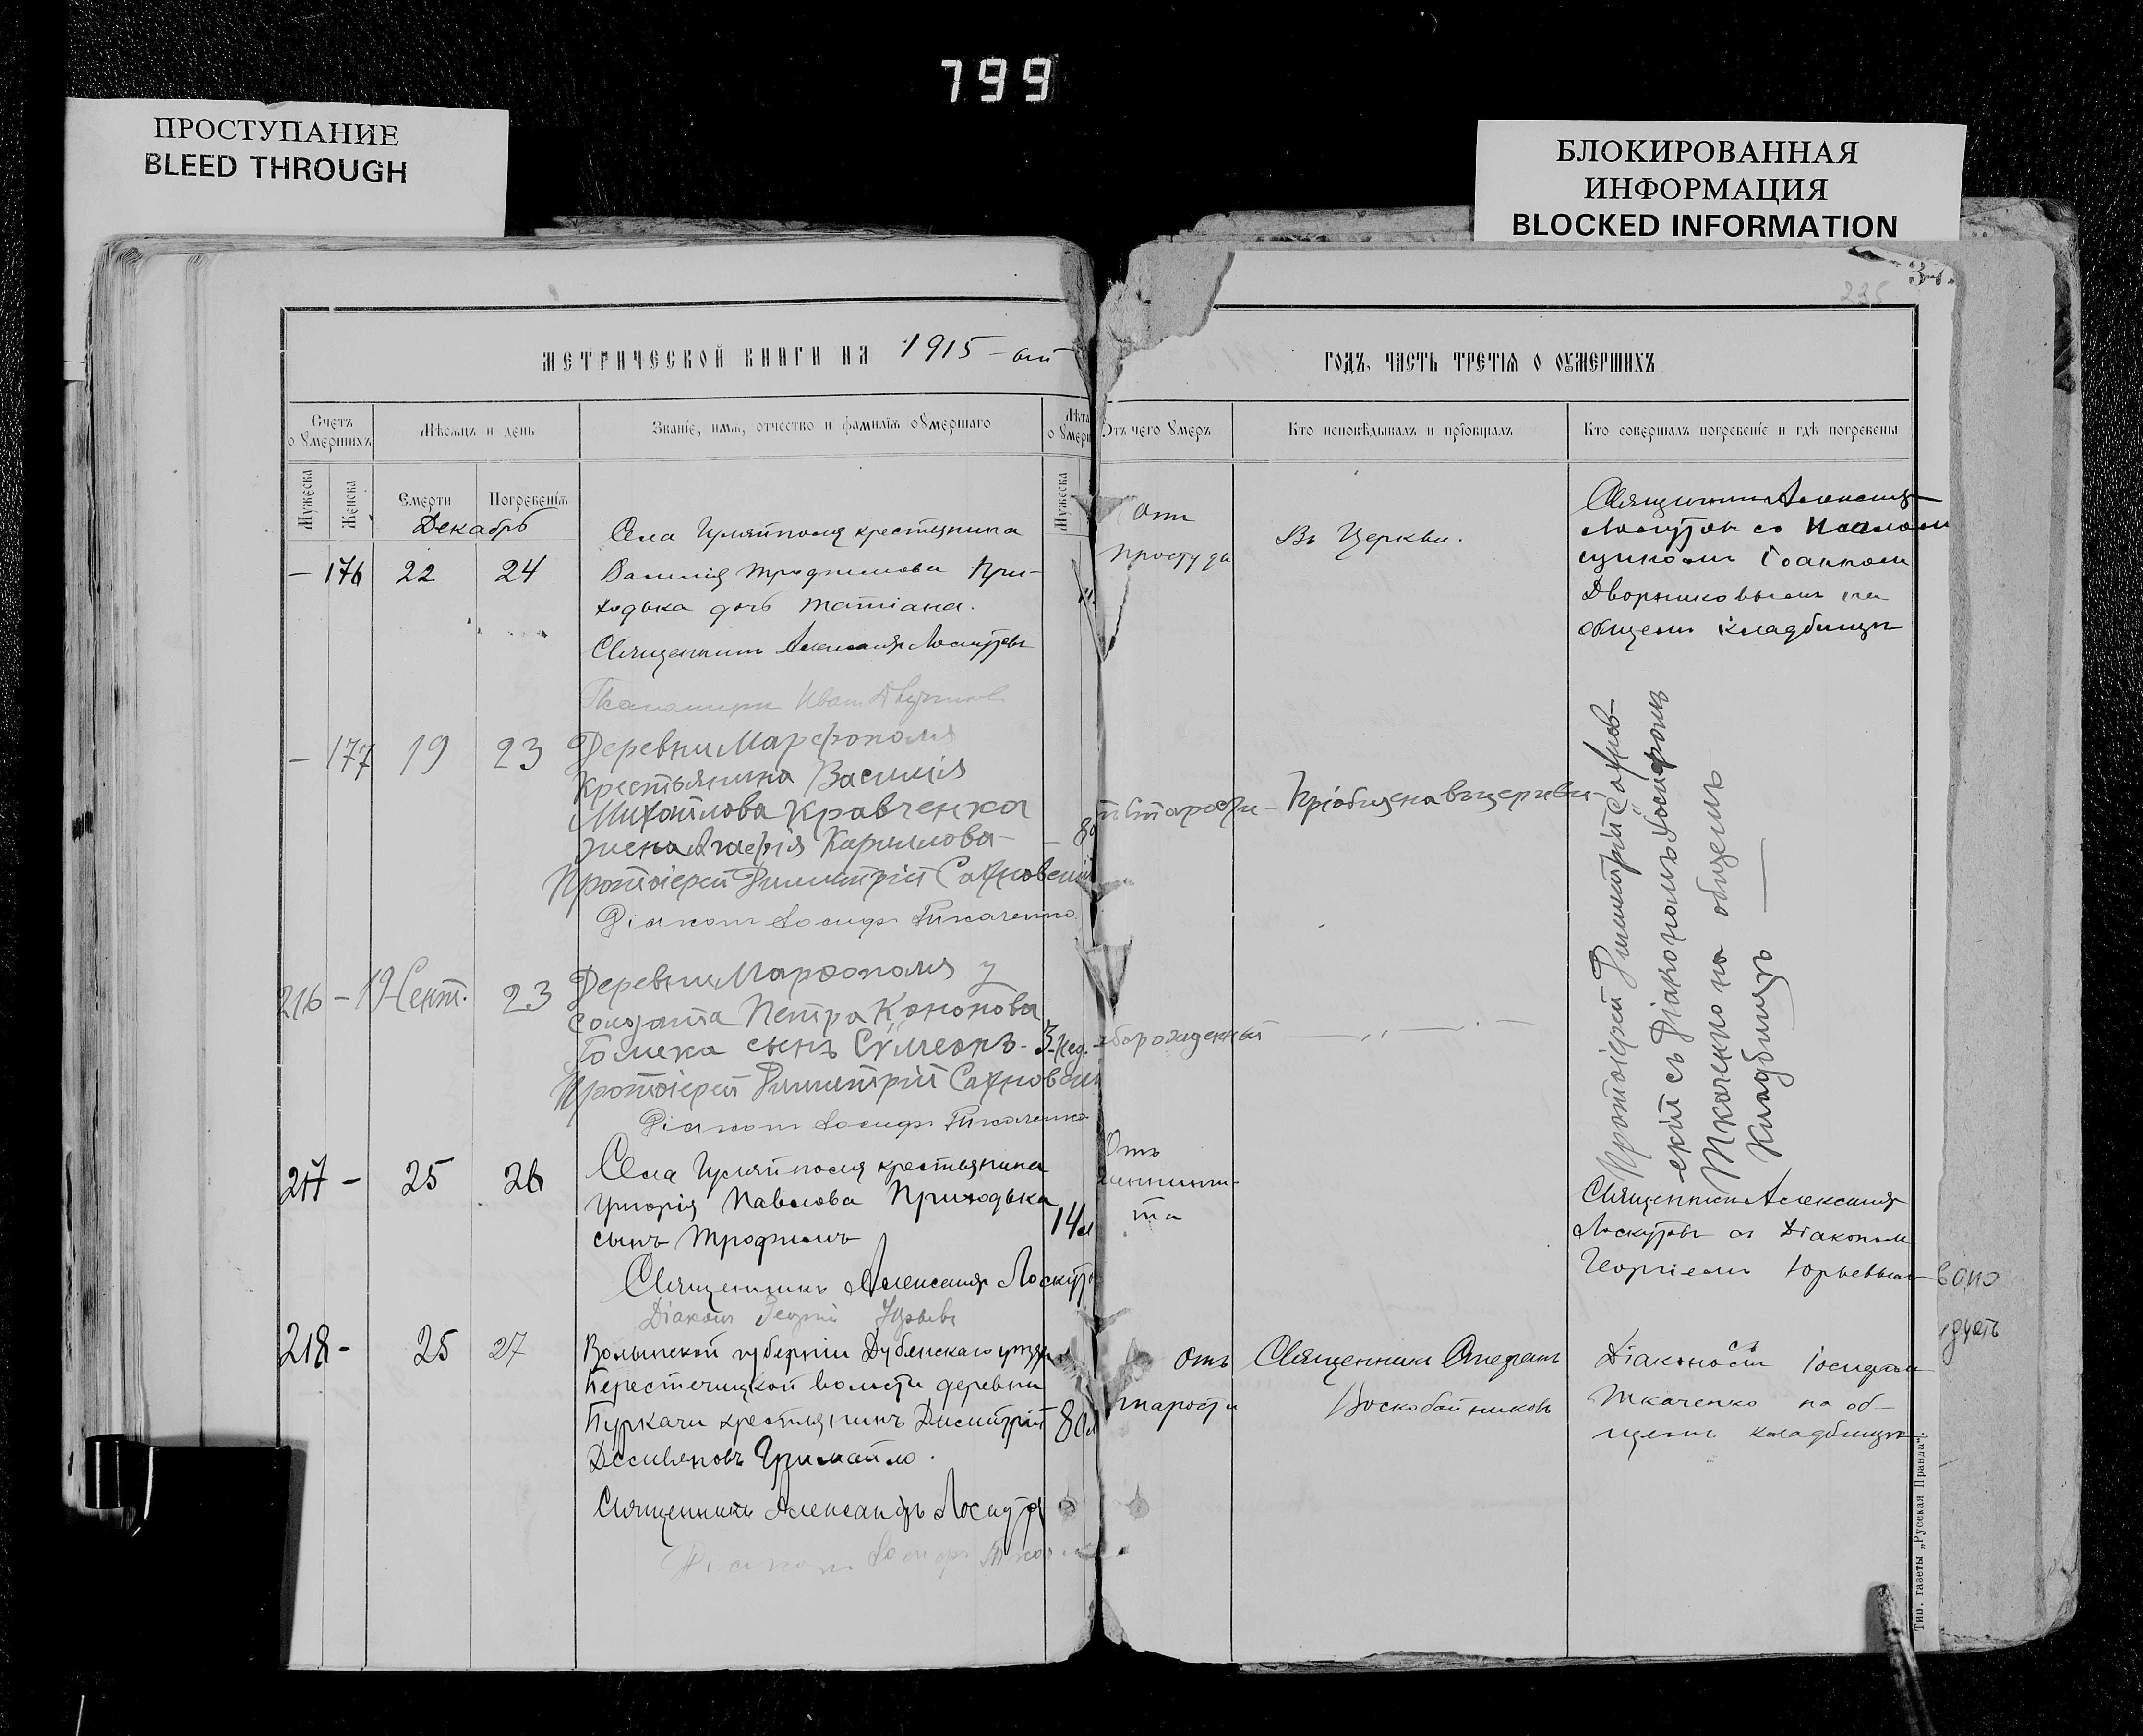 799
ПРОСТУПАНИЕ
BLEED THROUGH
БЛОКИРОВАННАЯ
ИНФОРМАЦИЯ
BLOCKED INFORMATION
МЕТРИЧЕСКОЙ КНИГИ НА 1915-ый
Счетъ
о умершихъ
Мѣсяцъ и день
Званіе, имя, отчество и фамилія умершаго
Лѣта
о умерш
Мужеска
Женска
Смерти
Погребенія
Мужеска
Декабрь
— 176 22 24
Села Гуляйполя крестьянина
Василія Трофимова При-
ходька дочь Татіана.
Священникъ Александръ Лоскутовъ
Псаломщикъ Иван Дворников
— 177 19 23
Деревни Марфополя
Крестьянина Василія
Михайлова Кравченка
жена Агафія Кириллова — 80
Протоіерей Димитрій Сахновскій
Діаконъ Іосифъ Ткаченко
216 — 19 Сент. 23
Деревни Марфополя у
солдата Петра Кононова
сынъ Сѵмеонъ - 3 нед.
Протоіерей Димитрій Сахновскій
Діаконъ Іосифъ Ткаченко
217 — 25 26
Села Гуляйполя крестьянина
Григорія Павлова Приходька 14
сынъ Трофимъ
Священникъ Александръ Лоскутов
Діаконъ Георгій Юрьевъ
218 - 25 27
Волынской губерніи Дубенскаго уѣзда
Берестечицкой волости деревни
Пуркачи крестьянинъ Димитрій 80
Гримайло.
Священникъ Александръ Лоскутов
Діаконъ Іосифъ
ГОДЪ, ЧАСТЬ ТРЕТІЯ О ОУМЕРШИХЪ
Отъ чего умеръ
Кто исповѣдывалъ и пріобщалъ
Кто совершалъ погребеніе и гдѣ погребены
Отъ
простуды
Въ Церкви.
Священникъ Александръ
Лоскутовъ со Псалом
щикомъ Іоанномъ
Дворниковымъ на
общемъ кладбищѣ
старости
Пріобщена въ церкви
Протоіерей Димитрій Сахнов-
скій съ Діакономъ Іосифомъ
Ткаченко на общемъ
Кладбищѣ
Отъ
менинги-
та
Священникъ Александръ
Лоскутовъ съ Діакономъ
Георгіемъ Юрьевымъ
Отъ
старости
Священникъ Стефанъ
Воскобойниковъ
Діакономъ Іосифомъ
Ткаченко на об-
щемъ кладбищѣ
Тип. газеты „Русская Правда".